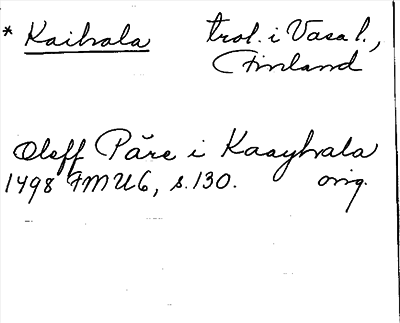 * Kaihala trol. i Vasa l.,
Finland
Oleff Påre i Kaayhala
1498 FMU6, s. 130. orig.